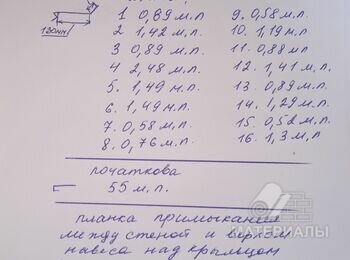 130мм
1 0,89 м.п.
2 1,42 м.п.
3 0,89 м.п.
4 2,48 м.п.
5. 1,49 м.п.
6. 1,49 м.п.
7. 0,58 м.п.
8. 0,76 м.п.
9. 0,58 м.п.
10. 1,19 м.п.
11. 0,88 мп
12. 1,41 м.п.
13. 0,89 м.п.
14. 1,29 м.п.
15. 0,58 м.п.
16. 1,3 м.п
початкова
55 м.п.
планка примыкания
между стеной и верхом
навеса над крыльцом
МАТЕРИАЛЫ